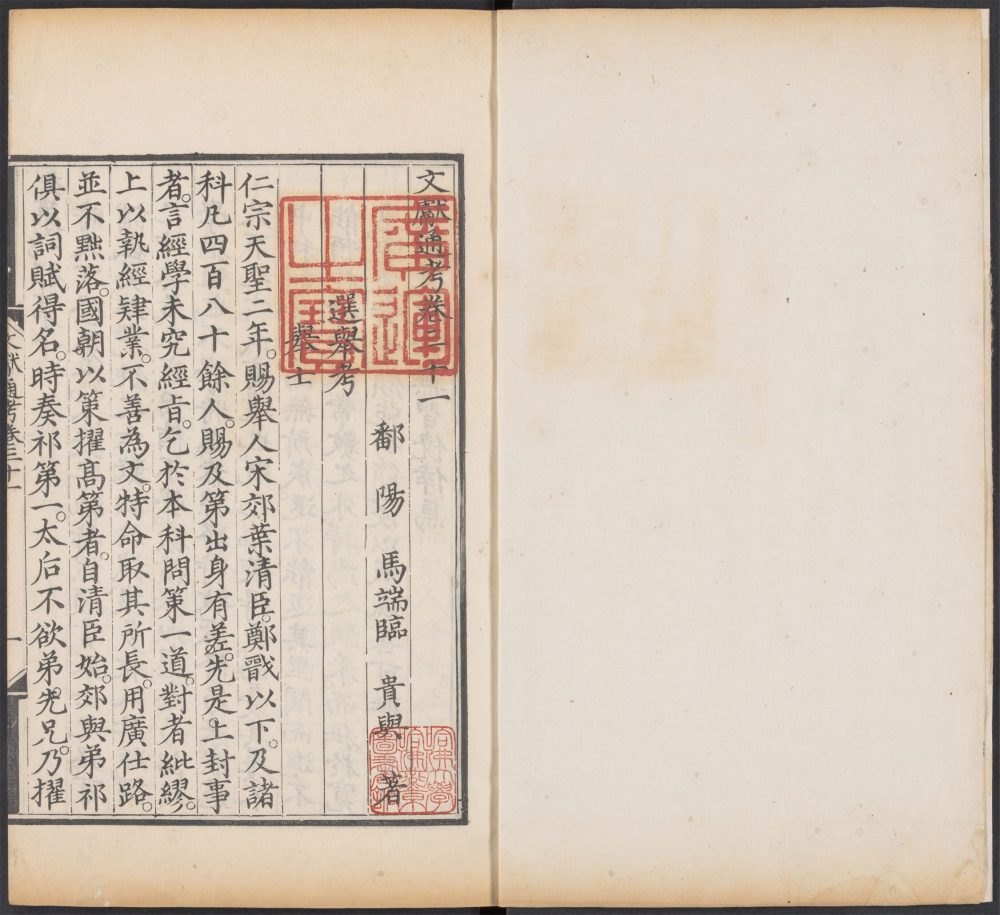 文獻通考卷三十一
鄱陽馬端臨貴與著
選舉考
舉士
仁宗天聖二年。賜舉人宋郊葉清臣。鄭戩以下。及諸
科凡四百八十餘人。賜及第出身有差。先是。上封事
者。言經學未究經旨。乞於本科問策一道。對者紕繆。
上以執經肄業。不善為文。特命取其所長。用廣仕路。
並不黜落。國朝以策擢高第者。自清臣始。郊與弟祁
俱以詞賦得名。時奏祁第一。太后不欲弟先兄。乃擢
文獻通考卷三十一
一